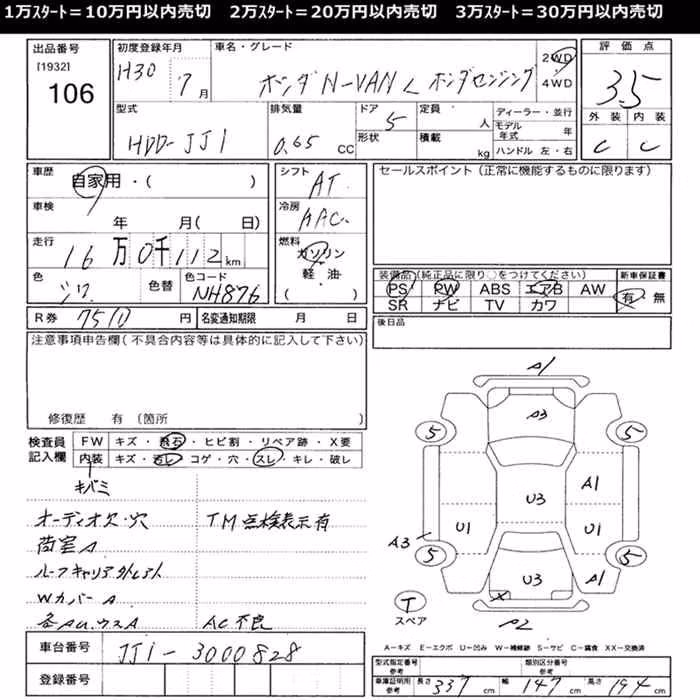 1万スタート＝10万円以内売切　2万スタート＝20万円以内売切　3万スタート＝30万円以内売切
出品番号
[1932]
106
初度登録年月
H30 7月
車名・グレード
ホンダ N-VAN L ホンダセンシング
2WD
4WD
評価点
3.5
外装 内装
C C
型式
HDD-JJ1
排気量
0.65 CC
ドア
5
形状
定員
人
積載
kg
ディーラー・並行
モデル年式 年
ハンドル 左・右
車歴
自家用・( )
車検
年 月( 日)
走行
16万0千112km
色
シロ
色替
色コード
NH876
シフト
AT
冷房
AAC
燃料
ガソリン
軽・油
( )
セールスポイント（正常に機能するものに限ります）
装備品（純正品に限り○をつけてください）
PS PW ABS エアB AW
SR ナビ TV カワ
新車保証書
有・無
R券 円
名変通知期限 月 日
後日品
注意事項申告欄（不具合内容等は具体的に記入して下さい）
修復歴 有（箇所
検査員記入欄
FW キズ・飛石・ヒビ割・リペア跡・X要
内装 キズ・汚レ・コゲ・穴・スレ・キレ・破レ
キバミ
オーディオ欠・穴 TM点検表示有
荷室A
ルーフキャリア外レアト
WカバーA
AC不良
車台番号
JJ1-3000828
登録番号
A1
A3
5 5
U3
A1
U1 U1
A3
5 5
U3
A1
T
スペア
X
A2
A－キズ E－エクボ U－凹み W－補修跡 S－サビ C－腐食 XX－交換済
型式指定番号 参考
類別区分番号 参考
車庫証明用 参考
長さ 337 cm 幅 147 cm 高さ 194 cm